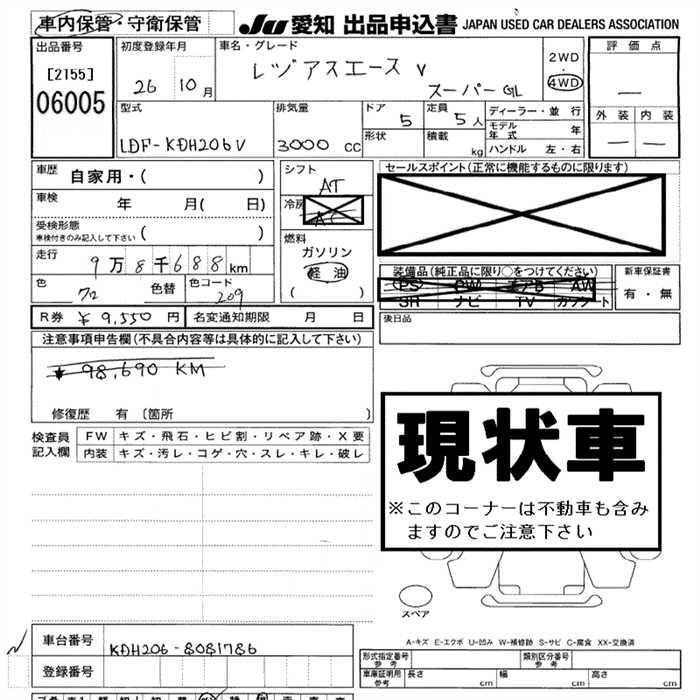 車内保管・守衛保管
JU 愛知 出品申込書 JAPAN USED CAR DEALERS ASSOCIATION
出品番号
[2155]
06005
初度登録年月
26 10月
車名・グレード
レジアスエース V
スーパーGL
2WD
・
4WD
評価点
外装 内装
型式
LDF-KDH206V
排気量
3000 CC
ドア
5
形状
定員
5人
積載
kg
ディーラー・並行
モデル年式 年
ハンドル 左・右
車歴
自家用・( )
車検
年 月( 日)
受検形態
車検付きのみ記入して下さい ( )
走行
9万8千688km
色
色替
色コード
209
シフト
AT
冷房
AC
燃料
ガソリン
軽油
( )
セールスポイント(正常に機能するものに限ります)
装備品(純正品に限り○をつけてください)
PS PW エアB AW
SR ナビ TV カワシート
新車保証書
有・無
後日品
R券 ¥9,550円
名変通知期限 月 日
注意事項申告欄(不具合内容等は具体的に記入して下さい)
98,690 KM
修復歴 有〔箇所 〕
検査員記入欄
FW キズ・飛石・ヒビ割・リペア跡・X要
内装 キズ・汚レ・コゲ・穴・スレ・キレ・破レ
現状車
※このコーナーは不動車も含み
ますのでご注意下さい
スペア
A-キズ E-エクボ U-凹み W-補修跡 S-サビ C-腐食 XX-交換済
車台番号
KDH206-8081786
登録番号
形式指定番号
参考
類別区分番号
参考
車庫証明用
参考
長さ cm
幅 cm
高さ cm